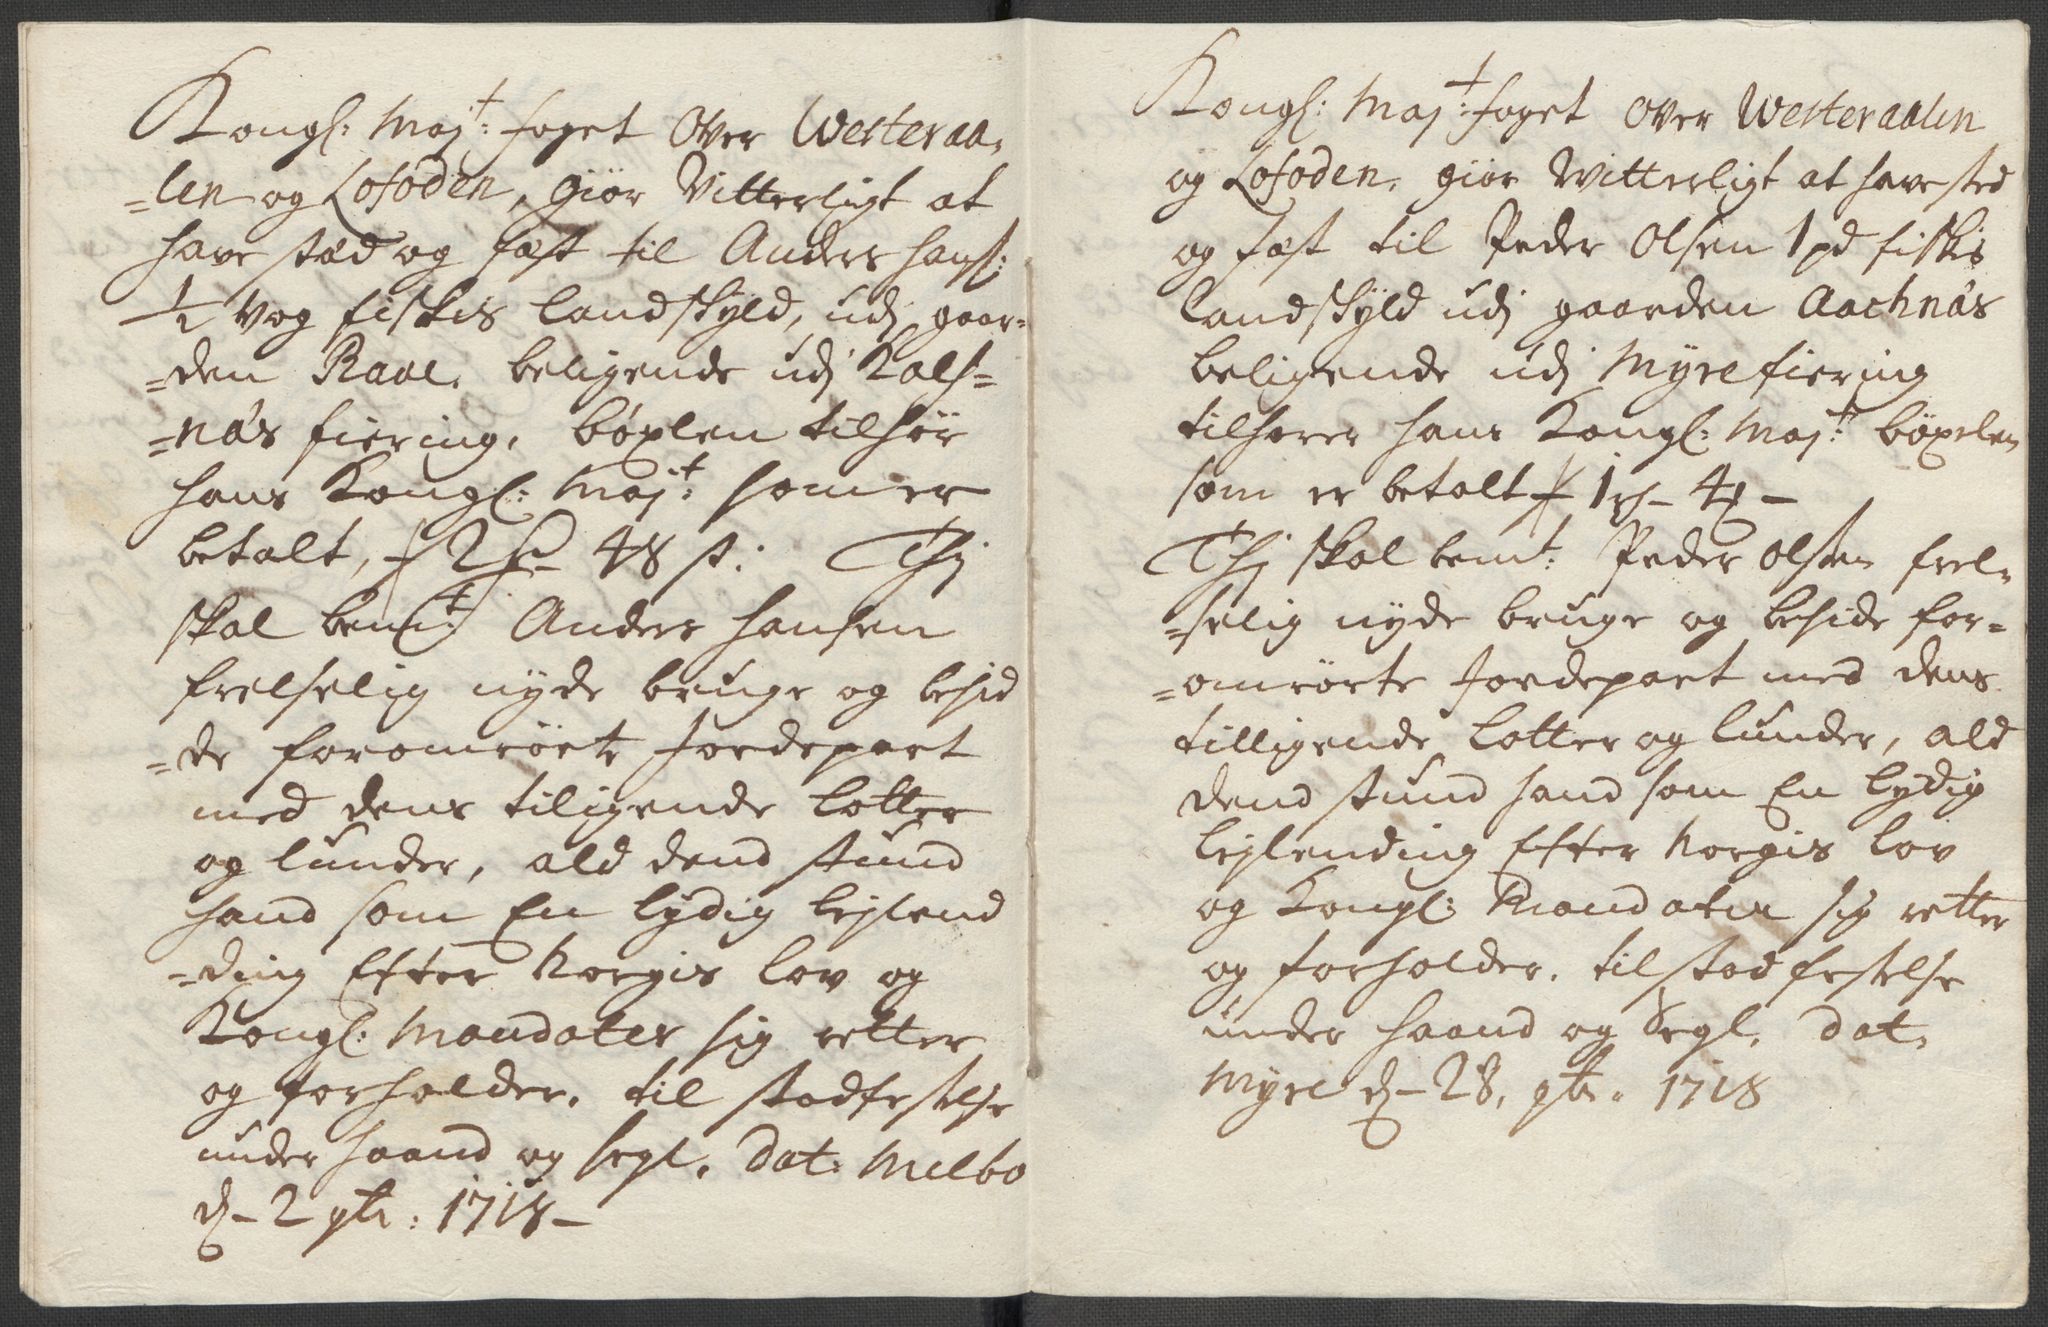 Kongl: Maj:t foget over Westeraa,
=len og Lofoden, giör Vitterligt at
have stæd og fæst til Anders Hanß:
1/2 Vog fiskis landskyld, udj gaar=
=den Raae, beligende udj Kals=
=næs fiering, böxlen tilhör
hans Kongl: Maj:t som er
betalt, 48 s: Thj
skal bem:t Anders Hansen
frelselig nyde bruge og besid
=de foromrörte Jordepart
med dens tiligende lotter
og lunder, ald dend stund
hand som En lydig lejlend
=ding Efter Norgis lov og
Kongl: Mandater sig retter
og forholder, til stadfestelse
under haand og segl, dat: Melbo
d - 2 9br: 1718 -
Kongl: Maj:t foget over Westeraalen
og Lofoden, giör Witterligt at have sted
og fæst til Peder Olsen 1 pd fiskis
landskyld udj gaarden Aachnæs
beligende udj Myre fiering
tilhører hans Kongl: Maj:t böxelen
som er betalt 1 - 4 -
Thj skal bem:t Peder Olsen frel=
=selig nyde bruge og beside for=
=omrörte Jordepart med dens
tilligende lotter og lunder, ald
dend stund hand som En lydig
lejlending Efter Norgis lov
og Kongl: Mandater sig retter
og forholder, til stadfestelse
under haand og Segl, dat,
Myre d - 28, 9br. 1718